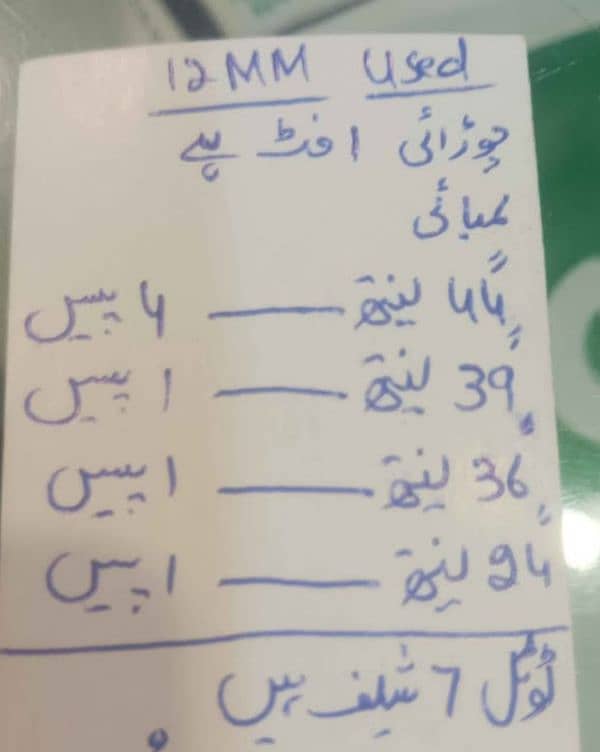 12MM Used
چوڑائی 1 فٹ ہے
لمبائی
44" لینتھ —— 4 پیس
39" لینتھ —— 1 پیس
36" لینتھ —— 1 پیس
24" لینتھ —— 1 پیس
ٹوٹل 7 شیلف ہیں